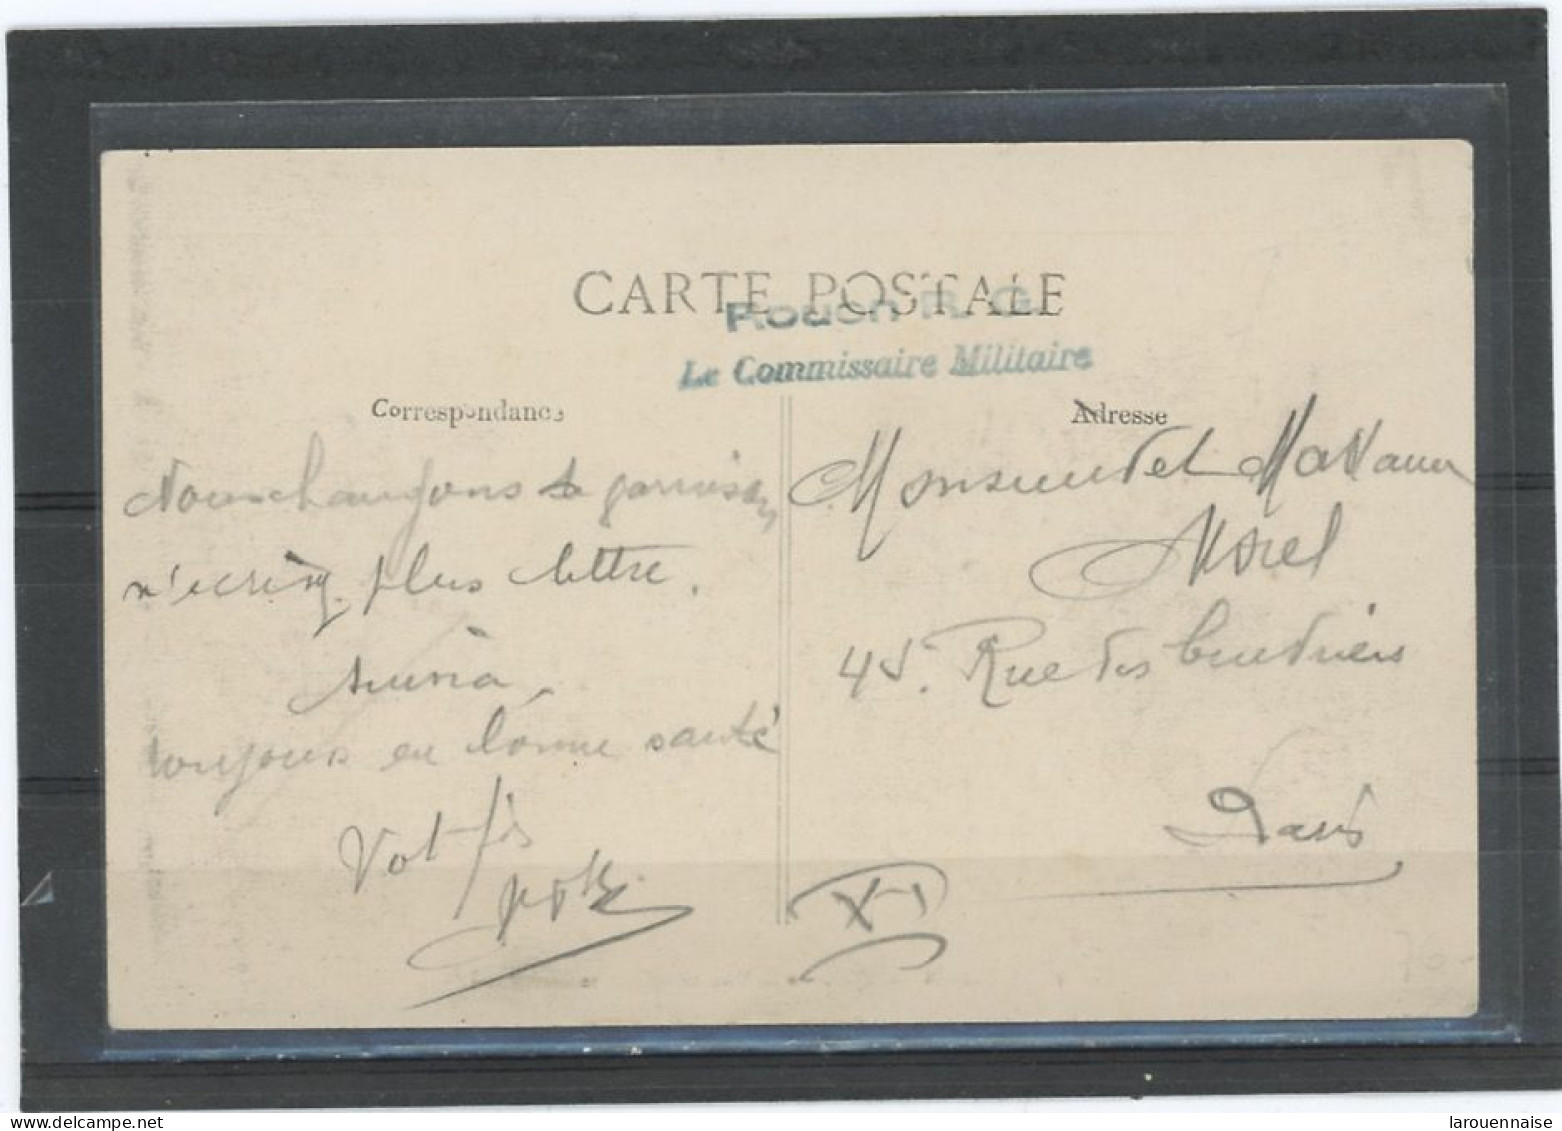 CARTE POSTALE
Rouen R. G.
Le Commissaire Militaire
Correspondance
Adresse
Nous changeons de garnison
n'écrivez plus lettre.
toujours en bonne santé
Vot fils
Monsieur et Madame
Morel
45. Rue des Cendriers
Paris
XI
70-
www.delcampe.net
larouennaise